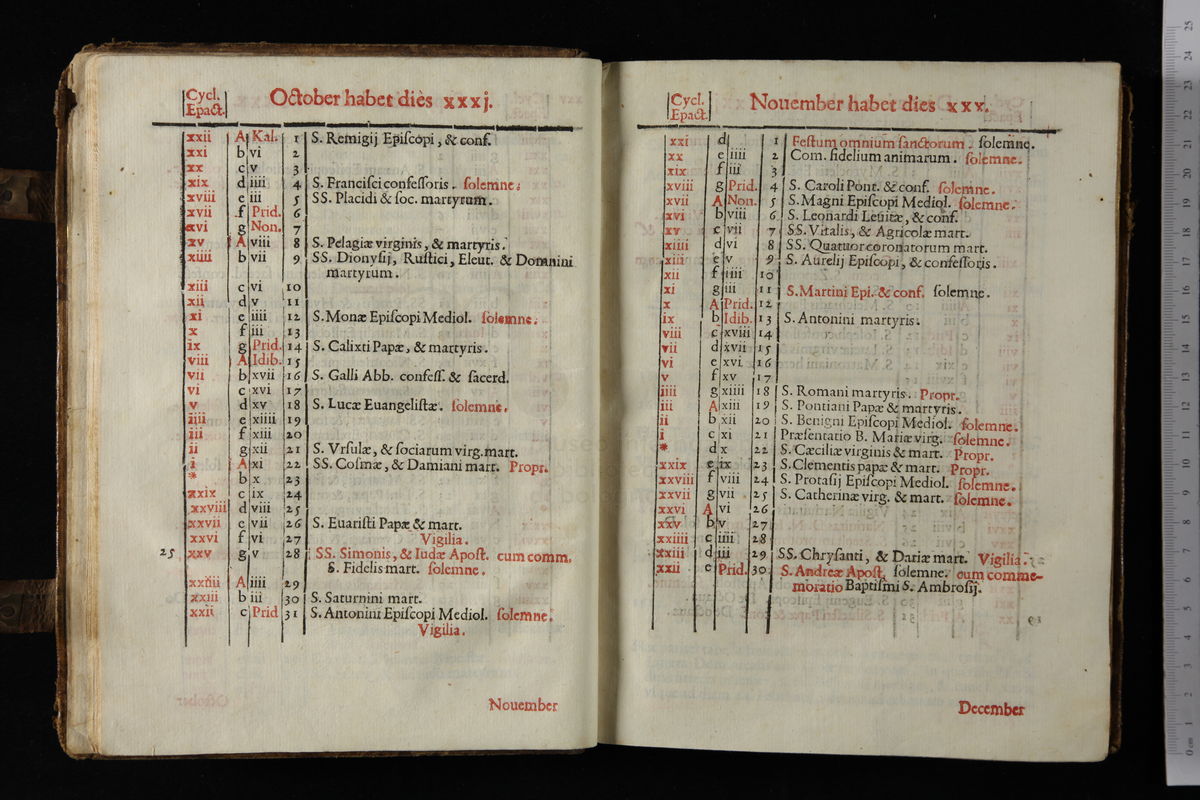 Cycl.
Epact.
October habet dies xxxj.
xxii A Kal. 1 S. Remigij Episcopi, & conf.
xxi b vi 2
xx c v 3
xix d iiii 4 S. Francisci confessoris. solemne.
xviii e iii 5 SS. Placidi & soc. martyrum.
xvii f Prid. 6
xvi g Non. 7
xv A viii 8 S. Pelagiæ virginis, & martyris.
xiiii b vii 9 SS. Dionysij, Rustici, Eleut. & Domnini
martyrum.
xiii c vi 10
xii d v 11
xi e iiii 12 S. Monæ Episcopi Mediol. solemne.
x f iii 13
ix g Prid. 14 S. Calixti Papæ, & martyris.
viii A Idib. 15
vii b xvii 16 S. Galli Abb. confess. & sacerd.
vi c xvi 17
v d xv 18 S. Lucæ Euangelistæ. solemne.
iiii e xiiii 19
iii f xiii 20
ii g xii 21 S. Vrsulæ, & sociarum virg. mart.
i A xi 22 SS. Cosmæ, & Damiani mart. Propr.
* b x 23
xxix c ix 24
xxviii d viii 25
xxvii e vii 26 S. Euaristi Papæ & mart.
xxvi f vi 27 Vigilia.
25 xxv g v 28 SS. Simonis, & Iudæ Apost. cum comm.
S. Fidelis mart. solemne.
xxiiii A iiii 29
xxiii b iii 30 S. Saturnini mart.
xxii c Prid 31 S. Antonini Episcopi Mediol. solemne.
Vigilia.
Nouember
Cycl.
Epact.
Nouember habet dies xxx.
xxi d 1 Festum omnium sanctorum. solemne.
xx e iiii 2 Com. fidelium animarum. solemne.
xix f iii 3
xviii g Prid. 4 S. Caroli Pont. & conf. solemne.
xvii A Non. 5 S. Magni Episcopi Mediol. solemne.
xvi b viii 6 S. Leonardi Leuitæ, & conf.
xv c vii 7 SS. Vitalis, & Agricolæ mart.
xiiii d vi 8 SS. Quatuor coronatorum mart.
xiii e v 9 S. Aurelij Episcopi, & confessoris.
xii f iiii 10
xi g iii 11 S. Martini Epi. & conf. solemne.
x A Prid. 12
ix b Idib. 13 S. Antonini martyris.
viii c xviii 14
vii d xvii 15
vi e xvi 16
v f xv 17
iiii g xiiii 18 S. Romani martyris. Propr.
iii A xiii 19 S. Pontiani Papæ & martyris.
ii b xii 20 S. Benigni Episcopi Mediol. solemne.
i c xi 21 Præsentatio B. Mariæ virg. solemne.
* d x 22 S. Cæciliæ virginis & mart. Propr.
xxix e ix 23 S. Clementis papæ & mart. Propr.
xxviii f viii 24 S. Protasij Episcopi Mediol. solemne.
xxvii g vii 25 S. Catherinæ virg. & mart. solemne.
xxvi A vi 26
xxv b v 27
xxiiii c iiii 28
xxiii d iii 29 SS. Chrysanti, & Dariæ mart. Vigilia.
xxii e Prid. 30 S. Andreæ Apost. solemne. cum comme-
moratio Baptismi S. Ambrosij.
December